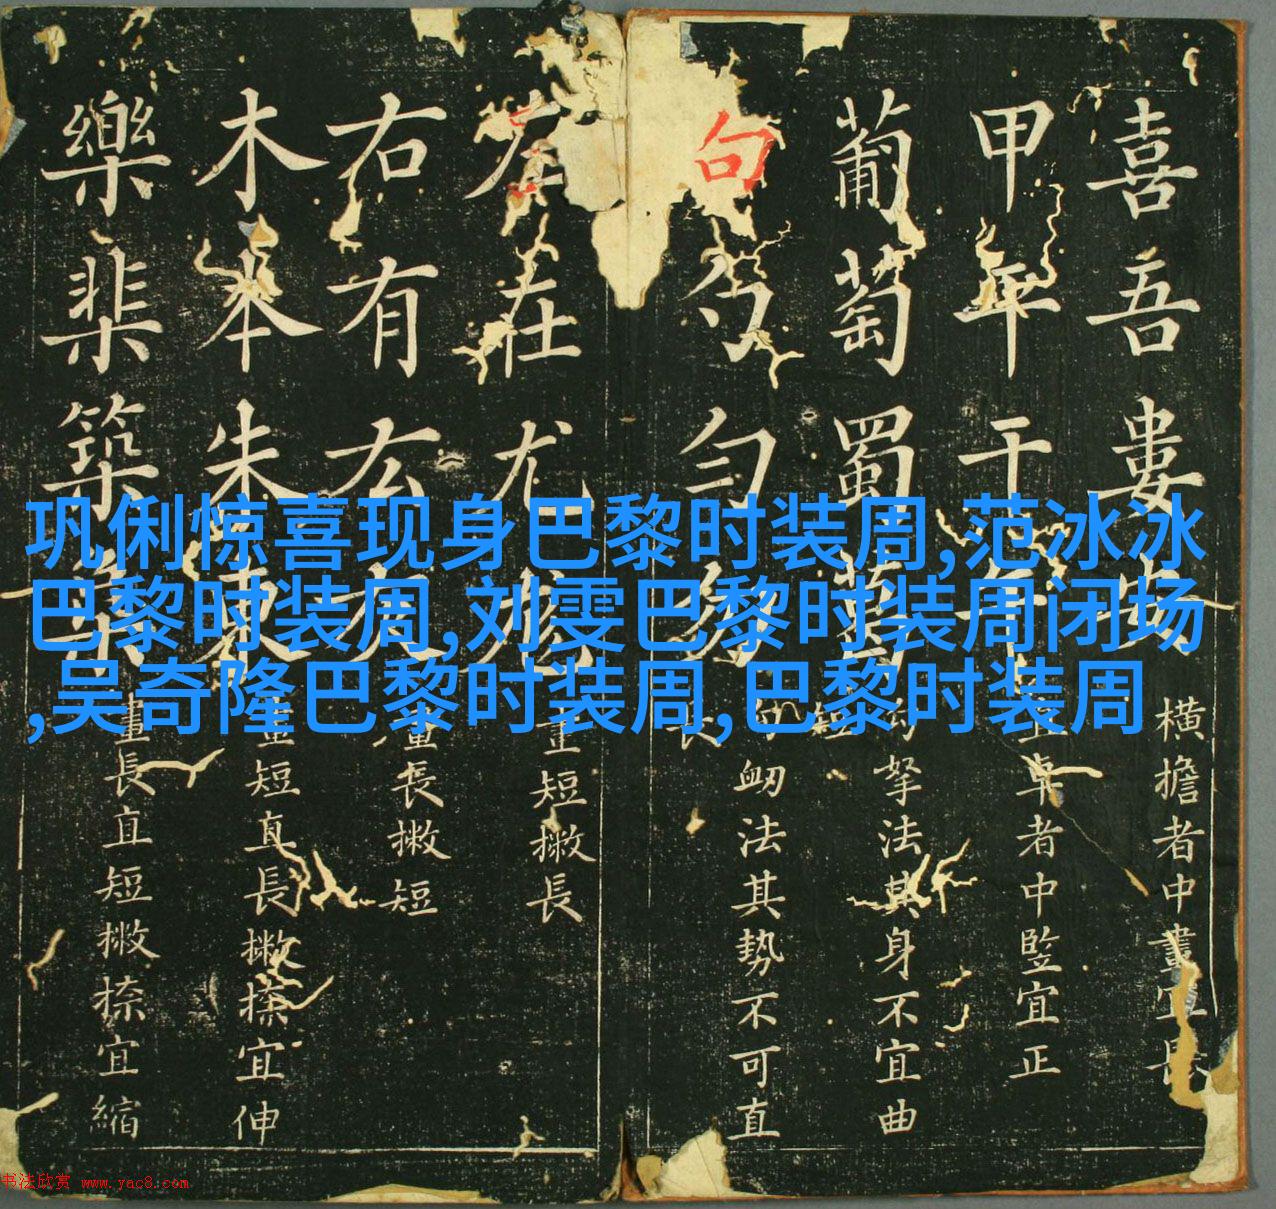 巩俐惊喜现身巴黎时装周,范冰冰
巴黎时装周,刘雯巴黎时装周闭场
,吴奇隆巴黎时装周,巴黎时装周
喜吾婁
横擔者中畫宜
甲平干
卓者中監宜正
葡萄蜀
拏法其身不宜曲
句勺勻
法其势不可直
左在尤
畫短撇長
右有
畫長撇短
木本朱東
畫短直長撇捺宜伸
樂棐築
畫長直短撇捺宜縮
书法欣赏 www.yac8.com